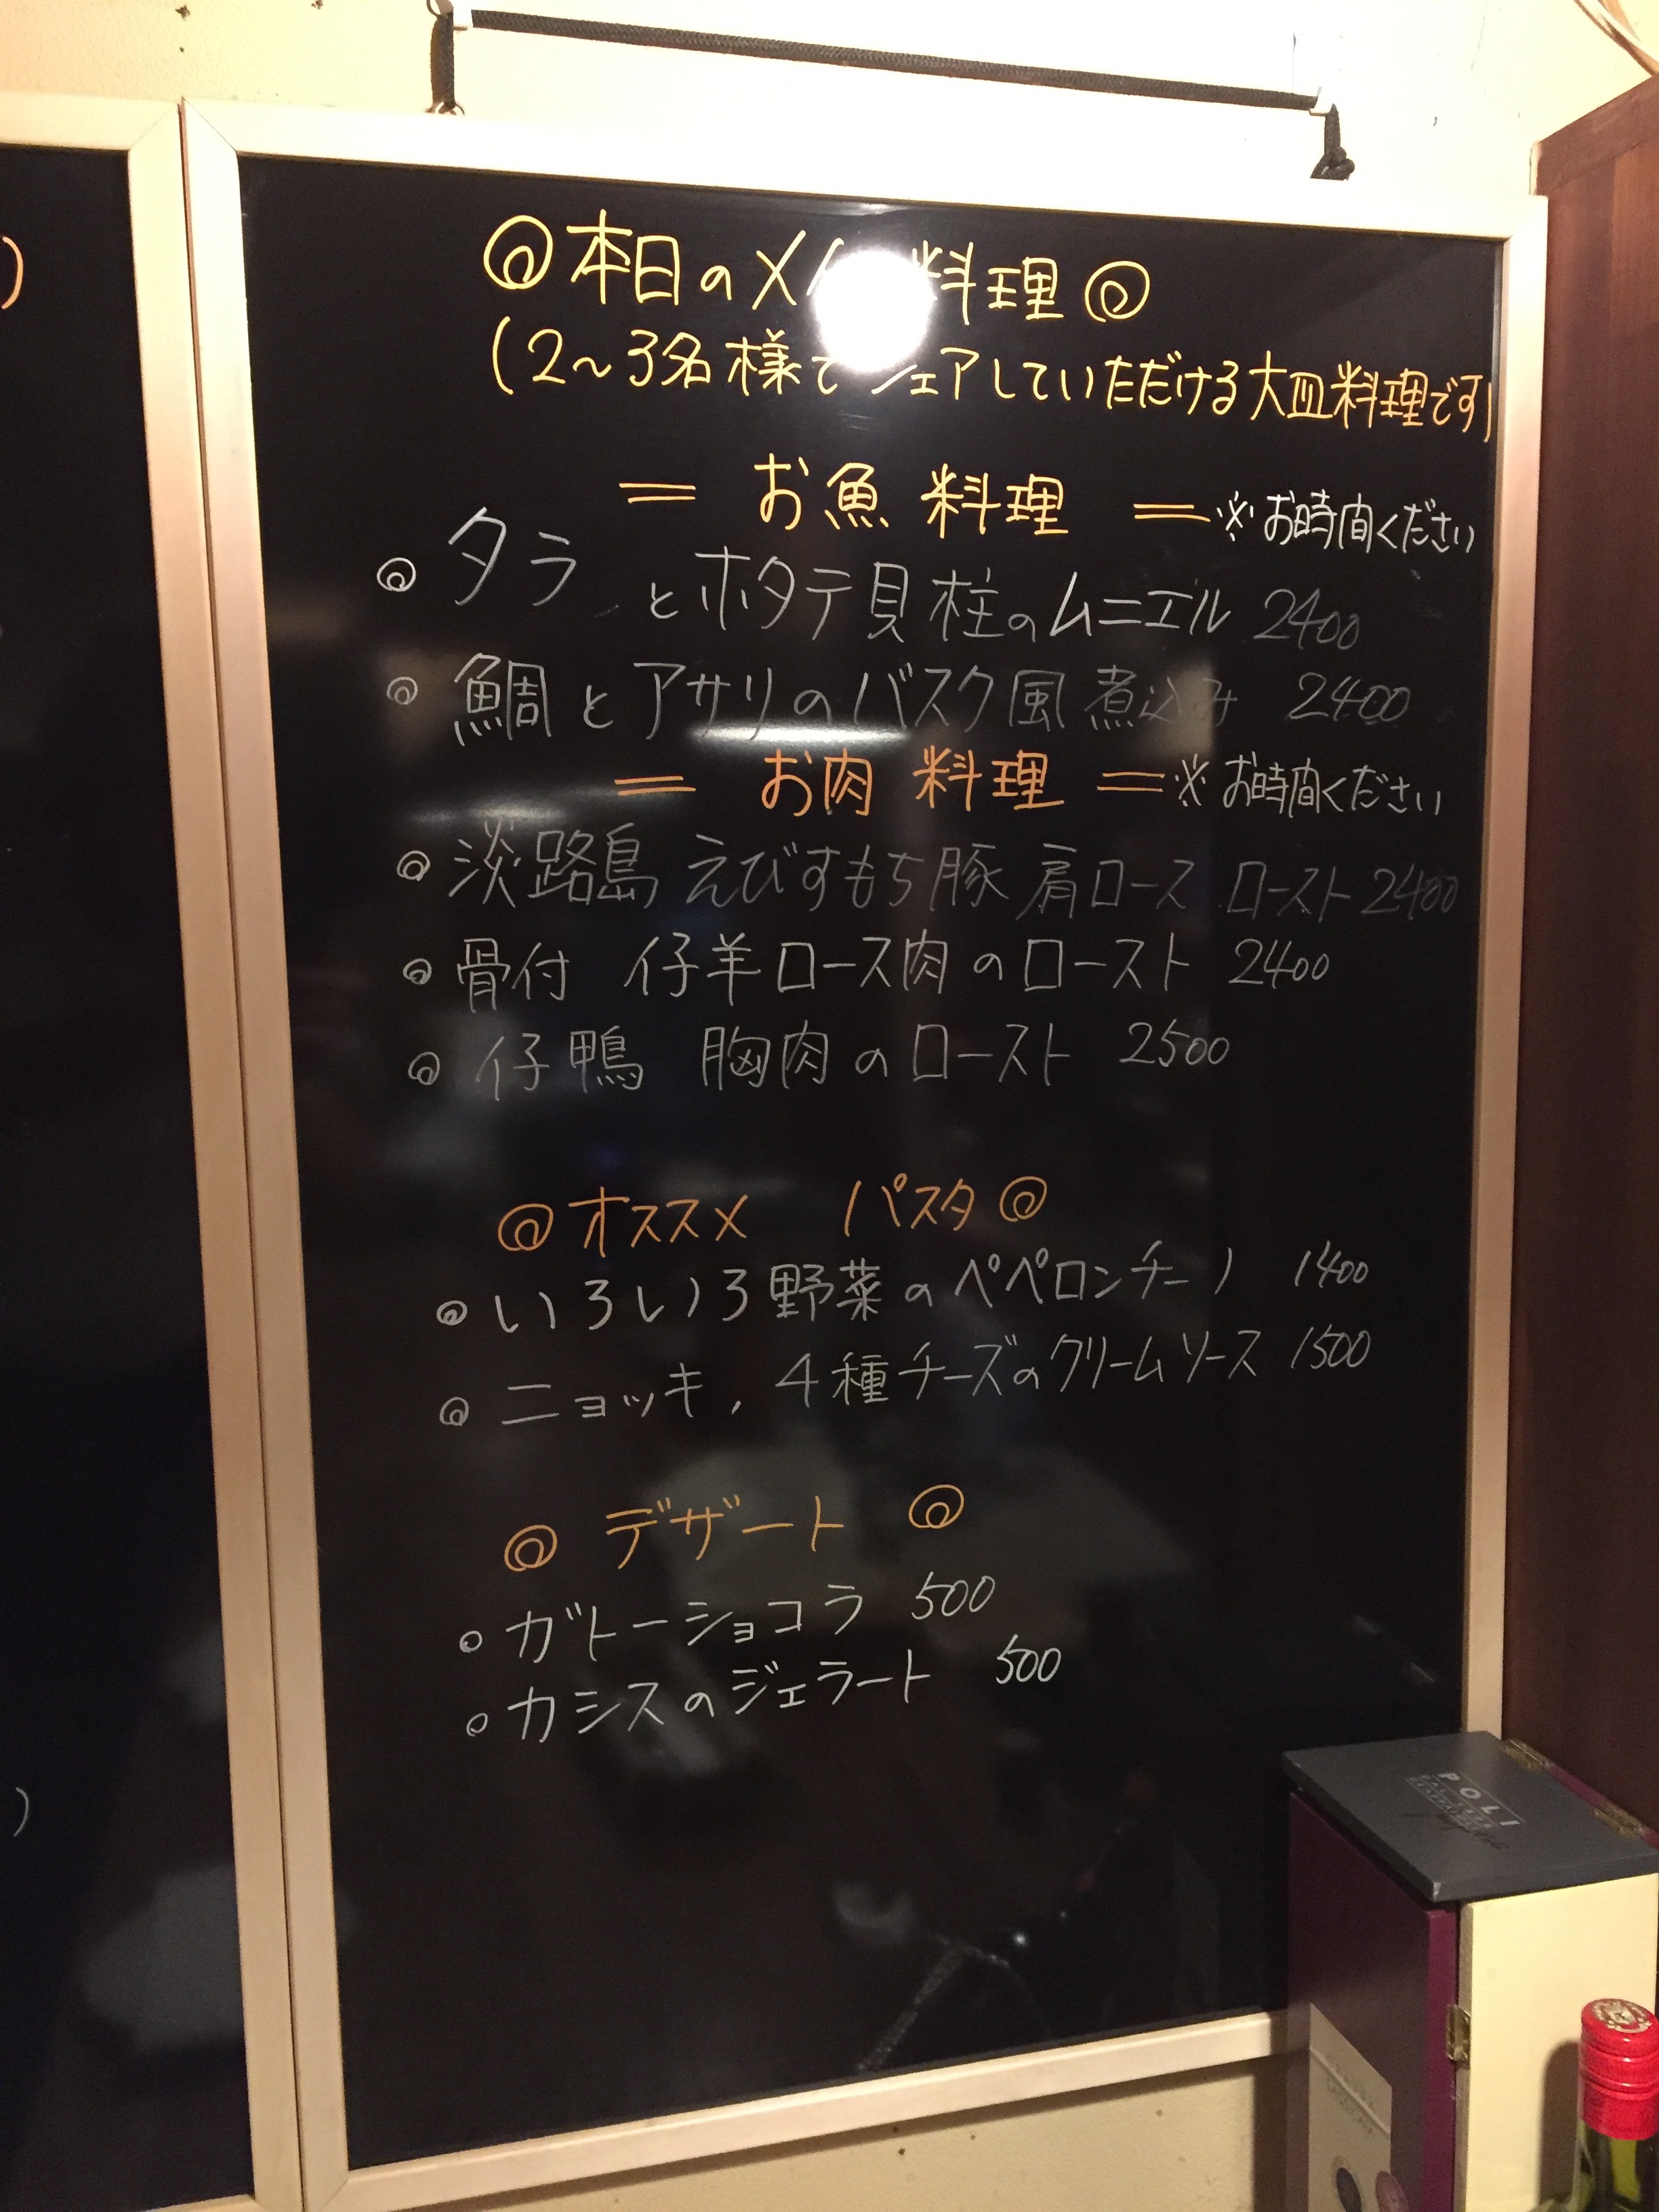 ◎本日のメイン料理◎
(2〜3名様でシェアしていただける大皿料理です)
= お魚料理 = ※お時間ください
◎タラとホタテ貝柱のムニエル 2400
◎鯛とアサリのバスク風煮込み 2400
= お肉料理 = ※お時間ください
◎淡路島えびすもち豚肩ロースロースト 2400
◎骨付 仔羊ロース肉のロースト 2400
◎仔鴨 胸肉のロースト 2500
◎オススメ パスタ◎
◎いろいろ野菜のペペロンチーノ 1400
◎ニョッキ, 4種チーズのクリームソース 1500
◎ デザート ◎
◎ガトーショコラ 500
◎カシスのジェラート 500
POLI